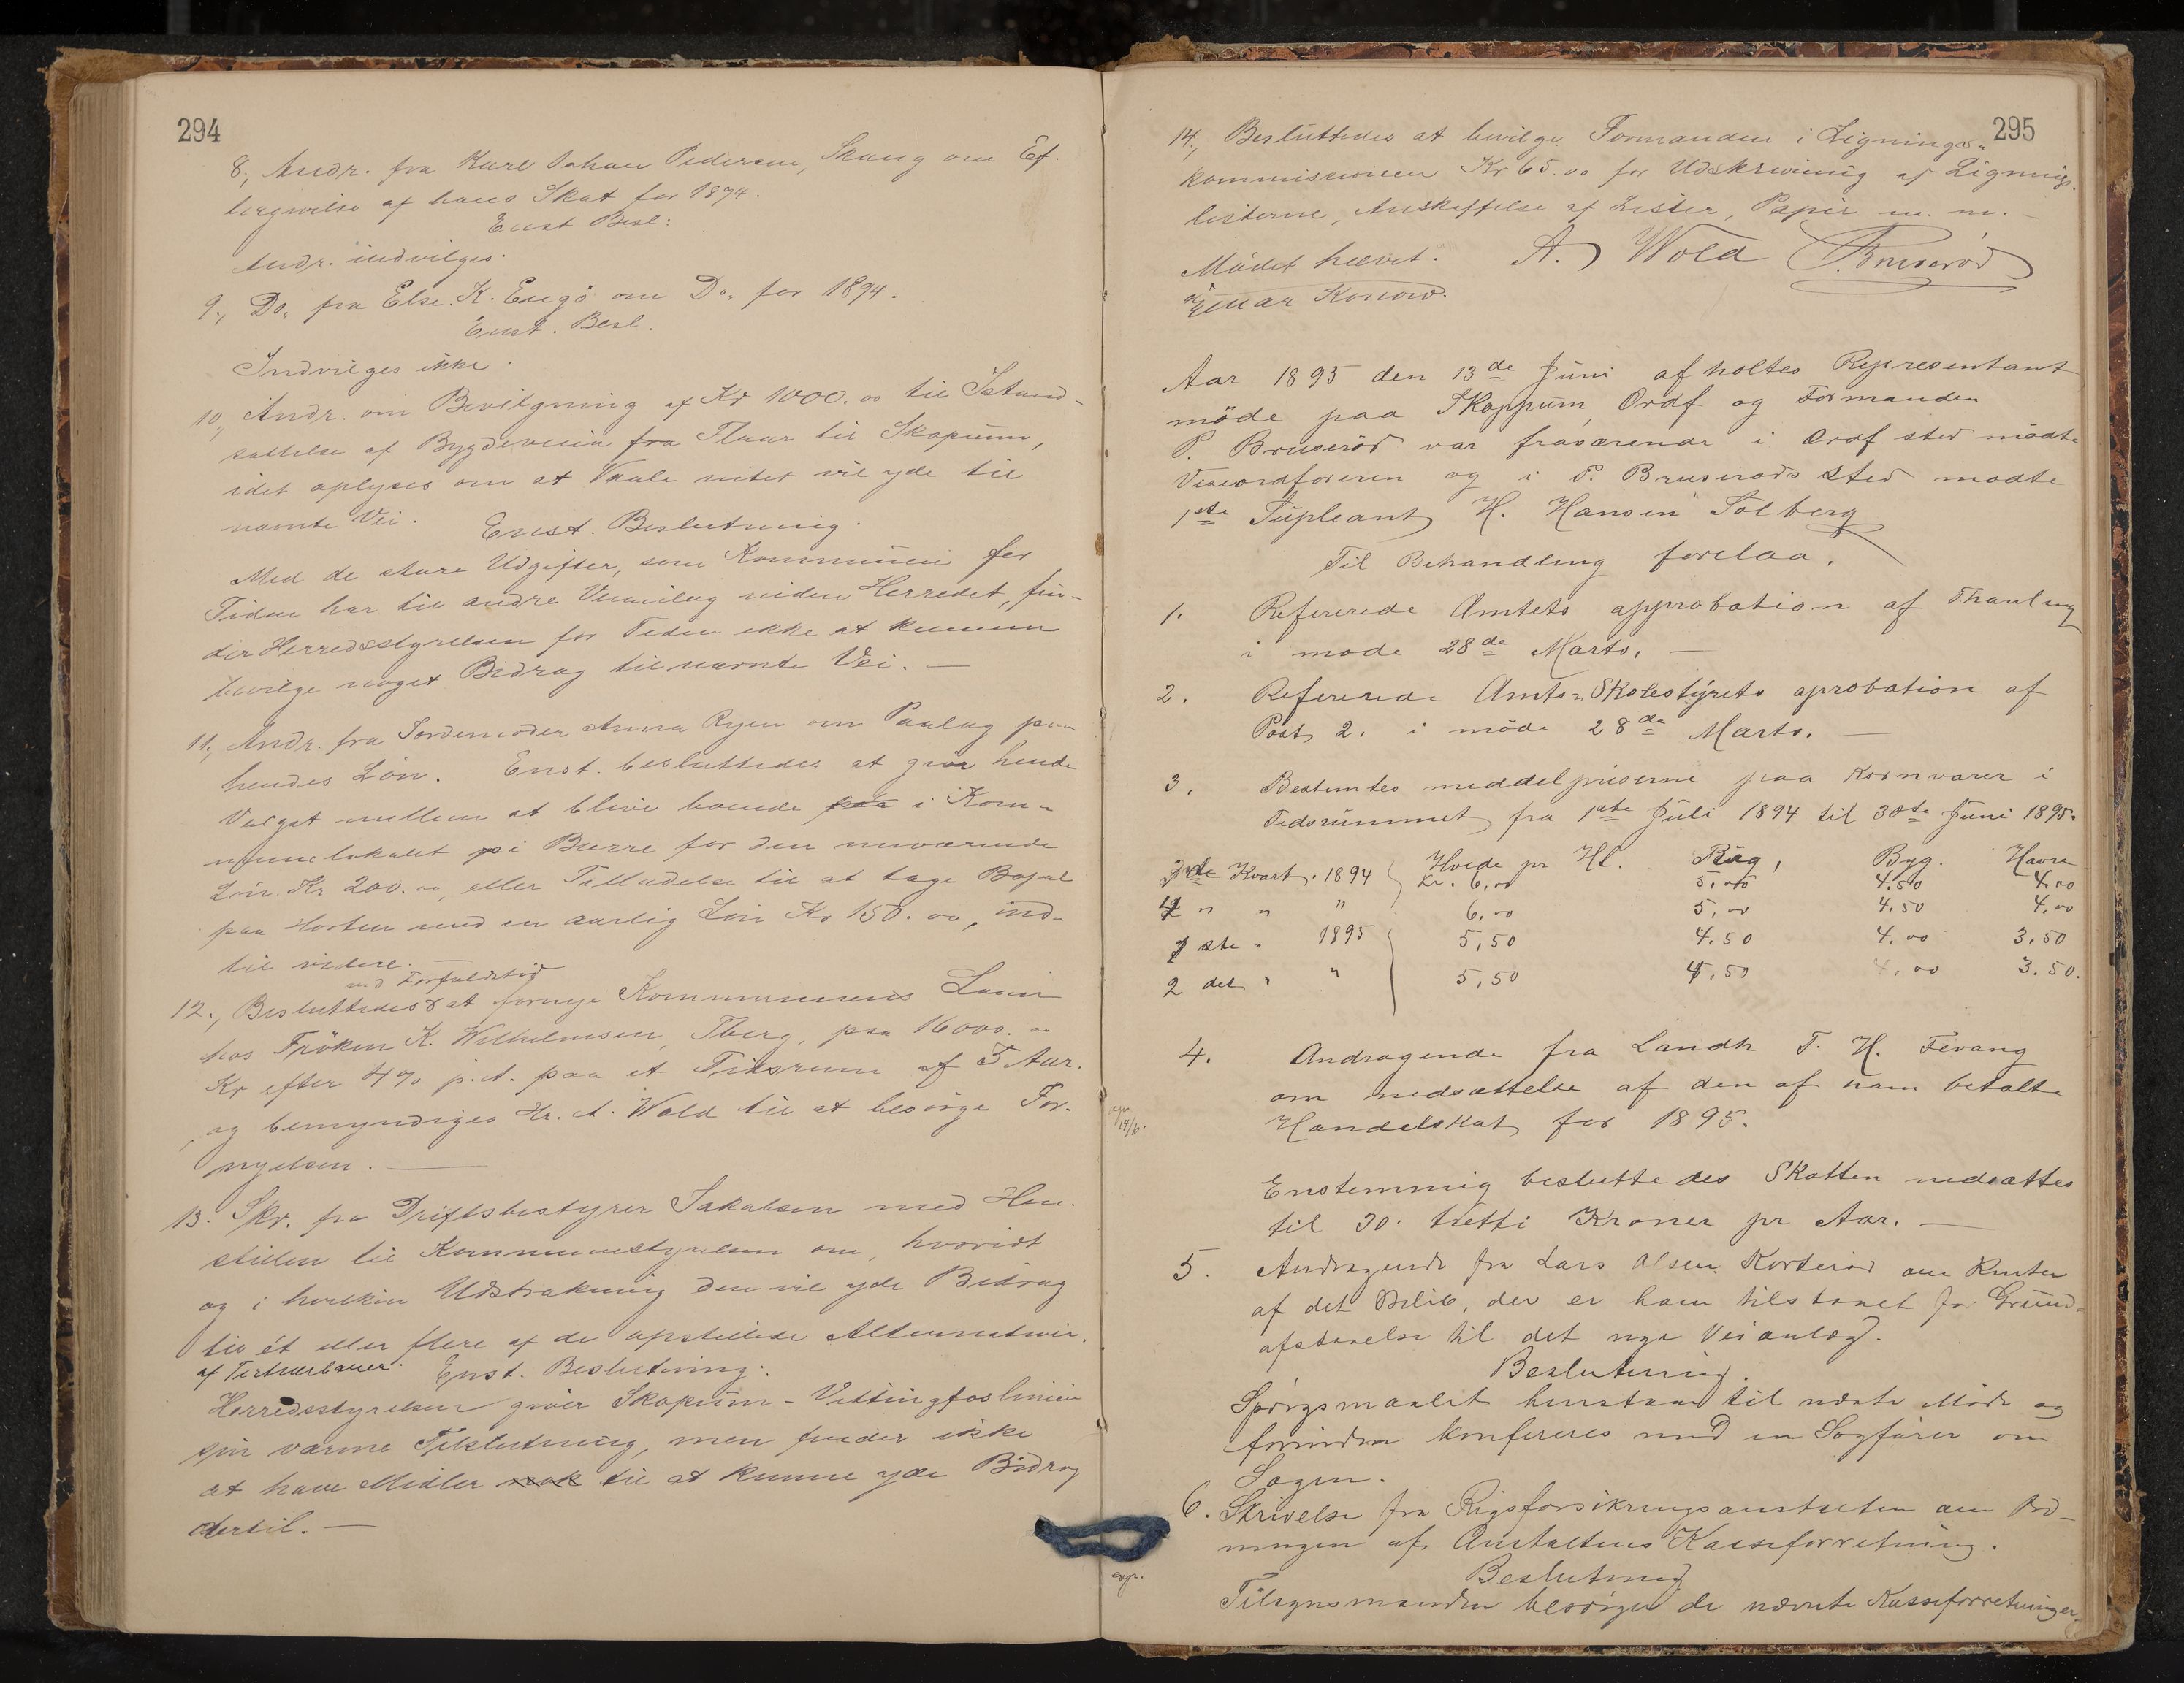 294
8., Andr. fra Karl Johan Pedersen, Skaug om Ef-
tergivelse af hans Skat for 1894.
Enst Besl:
Andr. indvilges.
9., Do. fra Else. K. Engö om Do. for 1894.
Enst. Besl.
Indvilges ikke.
10., Andr. om Bevilgning af Kr 1000.00 til Istand-
sættelse af Bygdeveien fra til Skopum,
idet oplyses om at Vaale intet vil yde til
nævnte Vei. Enst. Beslutning.
Med de store Udgifter, som Kommunen for
Tiden har til andre Veianlæg inden Herredet, fin-
der Herredsstyrelsen for Tiden ikke at kunne
bevilge noget Bidrag til nævnte Vei. —
11., Andr. fra Jordemoder Anna Ryen om Paalæg paa
hendes Lön. Enst. besluttedes at give hende
Valget mellem at blive boende paa i Kom-
munelokalet i Borre for den nuværende
Lön Kr 200.00, eller Tilladelse til at tage Bopæl
paa Horten med en aarlig Lön Kr 150.00, ind-
til videre. —
med Forfaldstid
12., Besluttedes at fornye Kommunens Laan
hos Fröken K. Wilhelmsen, Tberg, paa 16000.00
Kr efter 4% p.A. paa et Tidsrum af 5 Aar.
og bemyndiges Hr. A. Wold til at besörge For-
nyelsen. —
13. Skr. fra Driftsbestyrer Jakobsen med Hen-
stillen til Kommunestyrelsen om, hvorvidt
og i hvilken Udstrækning den vil yde Bidrag
til ét eller flere af de opstillede Alternativer.
af Tertiærbaner. Enst. Beslutning.
Herredsstyrelsen giver Skopum-Vittingfoslinien
sin varme Tilslutning, men finder ikke
at have Midler nok til at kunne yde Bidrag
dertil. —
295
14., Besluttedes at bevilge Formanden i Lignings-
kommissionen Kr 65.00 for Udskrivning af Lignings-
listerne, Anskaffelse af Lister, Papir m. m. —
Mödet hævet. A. Wold P. Bruseröd
Einar Konow.
Aar 1895 den 13de Juni afholtes Representant
möde paa Skoppum, Ordf og Formanden
P. Bruseröd var fraværende i Ordf sted mödte
Viseordföreren og i P. Bruseröds Sted mödte
1ste Supleant H. Hansen Solberg
Til Behandling forelaa.
1. Refererede Amtets approbation af
i möde 28de Marts. —
2. Refererede Amts-Skolestyrets aprobation af
Post 2. i möde 28de Marts. —
3. Bestemtes meddelpriserne paa Kornvarer i
Tidsrummet fra 1ste Juli 1894 til 30te Juni 1895.
3de Kvart. 1894 Hvede pr Hl. Rug, Byg. Havre
Kr. 6,00 5,00 4.50 4.00
4 " " " 6,00 5,00 4.50 4.00
1 ste " 1895 5,50 4.50 4.00 3.50
2 det " " 5,50 4,50 4,00 3.50.
4. Andragende fra Landh T. H. Fevang
om nedsættelse af den af ham betalte
Handelskat for 1895.
14/6.
Enstemmig besluttedes Skatten nedsættes
til 30. tretti Kroner pr Aar. —
5. Andragende fra Lars Olsen Korteröd om Renter
af det Belöb, der er ham tilstaaet for Grund-
afstaaelse til det nye Veianlæg.
Beslutning.
Spörgsmaalet henstaar til næste Möde og
forinden konfereres med en Sagförer om
Sagen.
6. Skrivelse fra Rigsforsikringsanstalten om Ord-
ningen af Anstaltens Kasseforretning.
Beslutning
exp.
Tilsynsmanden besörger de nævnte Kasseforretninger.